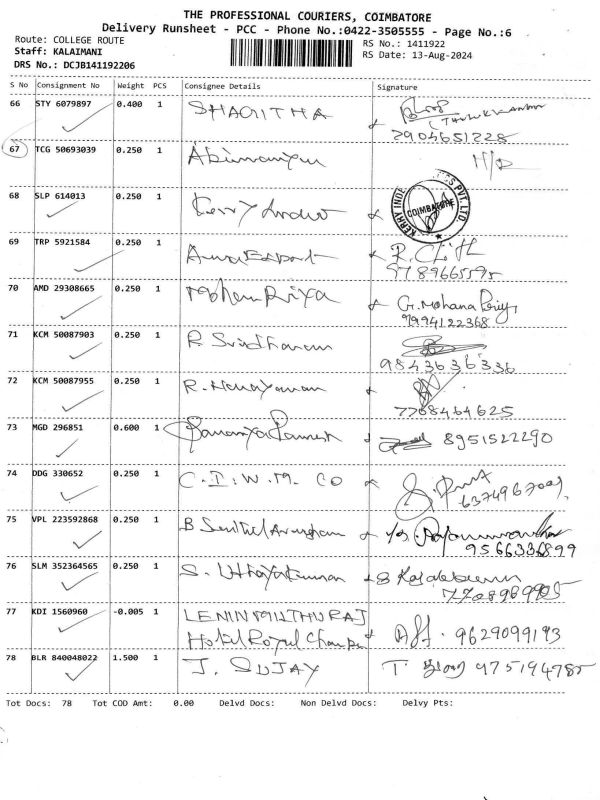 THE PROFESSIONAL COURIERS, COIMBATORE
Delivery Runsheet - PCC - Phone No.:0422-3505555 - Page No.:6
Route: COLLEGE ROUTE RS No.: 1411922
Staff: KALAIMANI RS Date: 13-Aug-2024
DRS No.: DCJB141192206
S No Consignment No Weight PCS Consignee Details Signature
66 STY 6079897 0.400 1 SHAGITHA
2904651228
67 TCG 50693039 0.250 1
68 SLP 614013 0.250 1 Kerry
KERRY INDE S PVT.LTD. COIMBATORE
69 TRP 5921584 0.250 1
9789665595
70 AMD 29308665 0.250 1 Mohan Priya G. Mohana Priya
9994122368
71 KCM 50087903 0.250 1 R. Sridharan
9843636336
72 KCM 50087955 0.250 1 R. Narayanan
7708464625
73 MGD 296851 0.600 1 8951522290
74 DDG 330652 0.250 1 C.I.W.M. CO
75 VPL 223592868 0.250 1
9566336899
76 SLM 352364565 0.250 1 S. Uthayakumar
7708969905
77 KDI 1560960 -0.005 1 LENIN MUTHURAJ
Hotel Royal 9629099193
78 BLR 840048022 1.500 1 J. SUJAY T. 975194785
Tot Docs: 78 Tot COD Amt: 0.00 Delvd Docs: Non Delvd Docs: Delvy Pts: